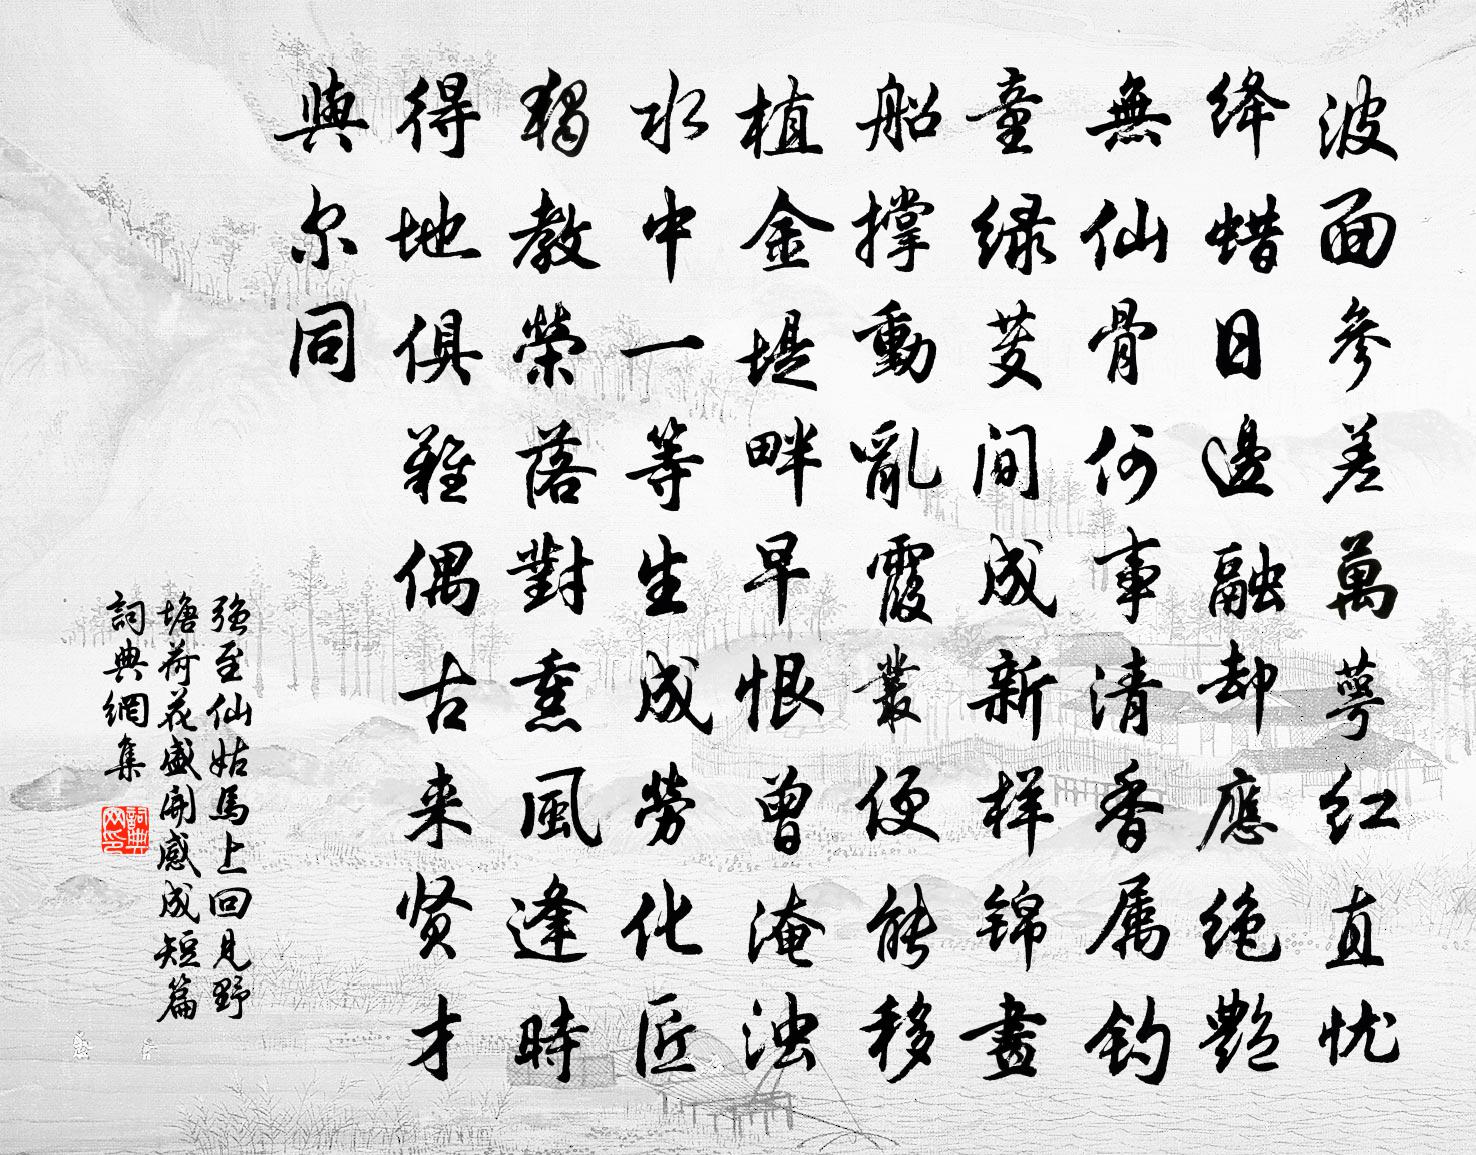 波面參差萬萼红直忧
绛蜡日邊融却應绝艷
無仙骨何事清香属钓
童绿芰间成新样锦畫
船撑動亂霞叢便能移
植金堤畔早恨曾淹浊
水中一等生成勞化匠
獨教榮落對熏風逢時
得地俱難偶古来贤才
與尔同
强至仙姑馬上回見野
塘荷花盛開感成短篇
詞典網集
詞典
网印